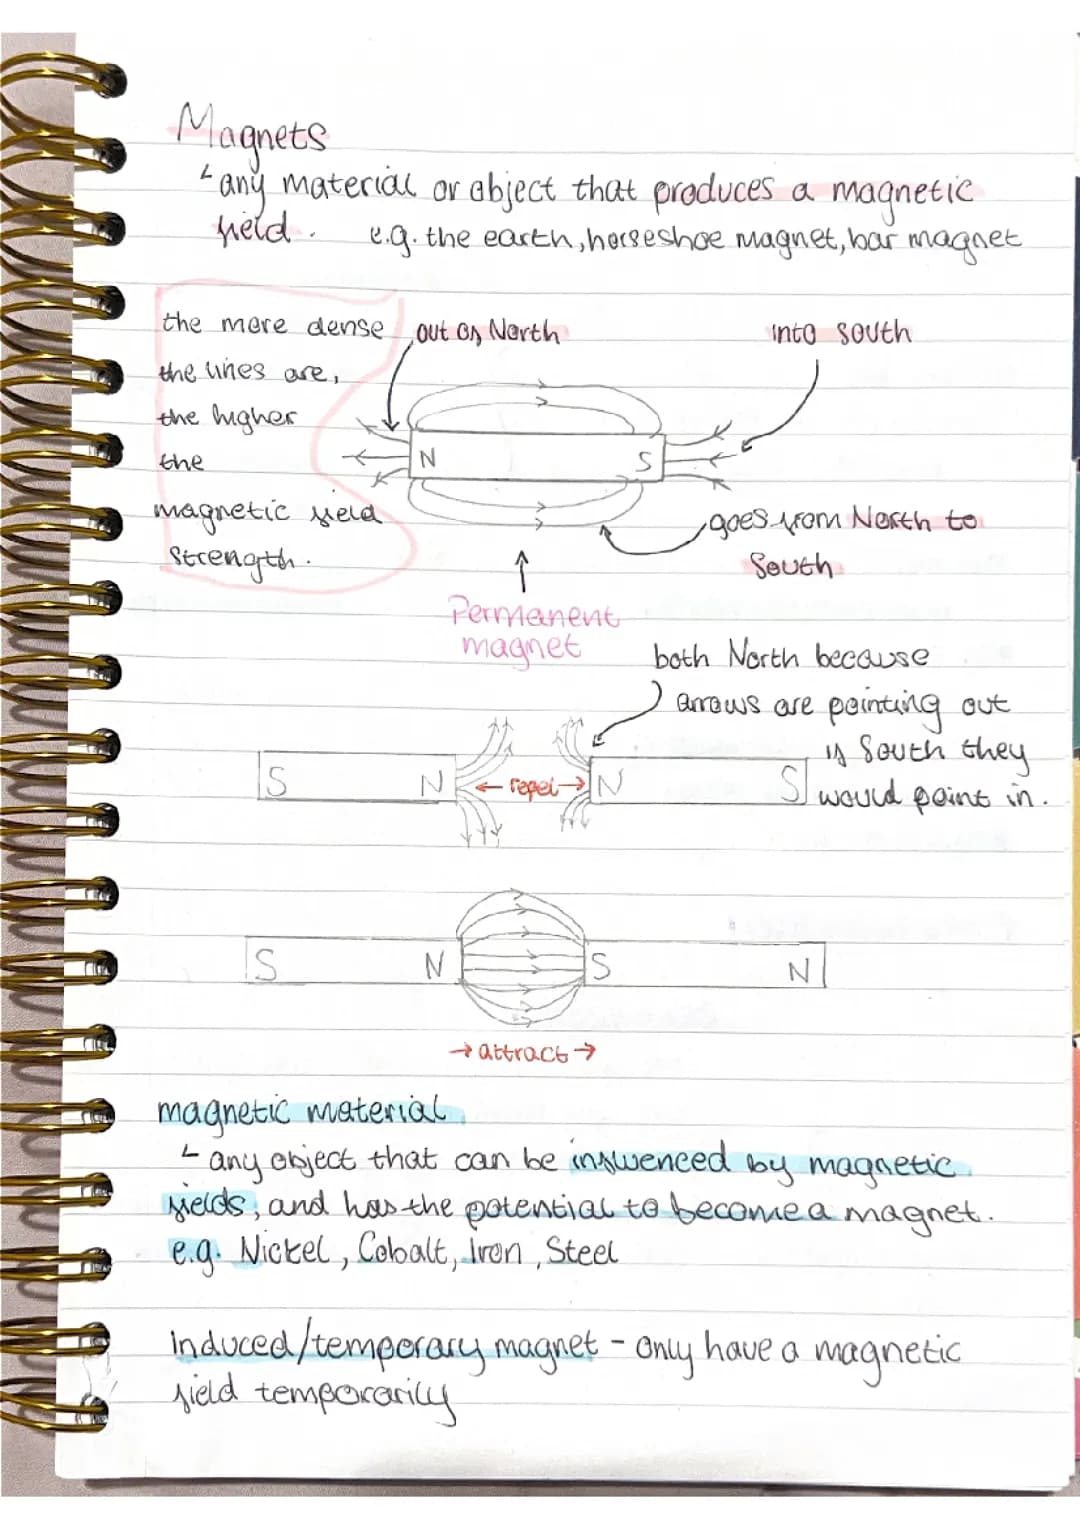 Magnets
any material or object that produces a magnetic
field. e.g. the earth, horseshoe magnet, bar magnet
the more dense
the lines are,
the higher
the
magnetic field
strength.
out of North
into south
N S
goes from North to
South
Permanent
magnet
both North because
arrows are pointing out
if South they
would point in.
S N ← repel → N S
S N S N
→ attract →
magnetic material
any object that can be influenced by magnetic
fields, and has the potential to become a magnet.
e.g. Nickel, Cobalt, Iron, Steel
Induced/temporary magnet - only have a magnetic
field temporarily